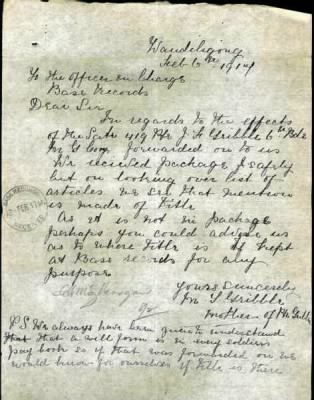 Wandiligong
Feb 6th 1917
To the Officer in Charge
Base Records
Dear Sir
In regards to the effects
of the Late 419 Pte J. H. Gribble 6th Bde
M G Coy forwarded on to us
We received package safely
but on looking over list of
articles we see that mention
is made of title
As it is not in package
perhaps you could advise us
as to where title is if kept
at Base records for any
purpose
Yours Sincerely
M S Gribble
Mother of Pte Gribble
PS We always have been given to understand
that a will form is in every soldiers
pay book so if that was forwarded on we
would know for ourselves if title is there